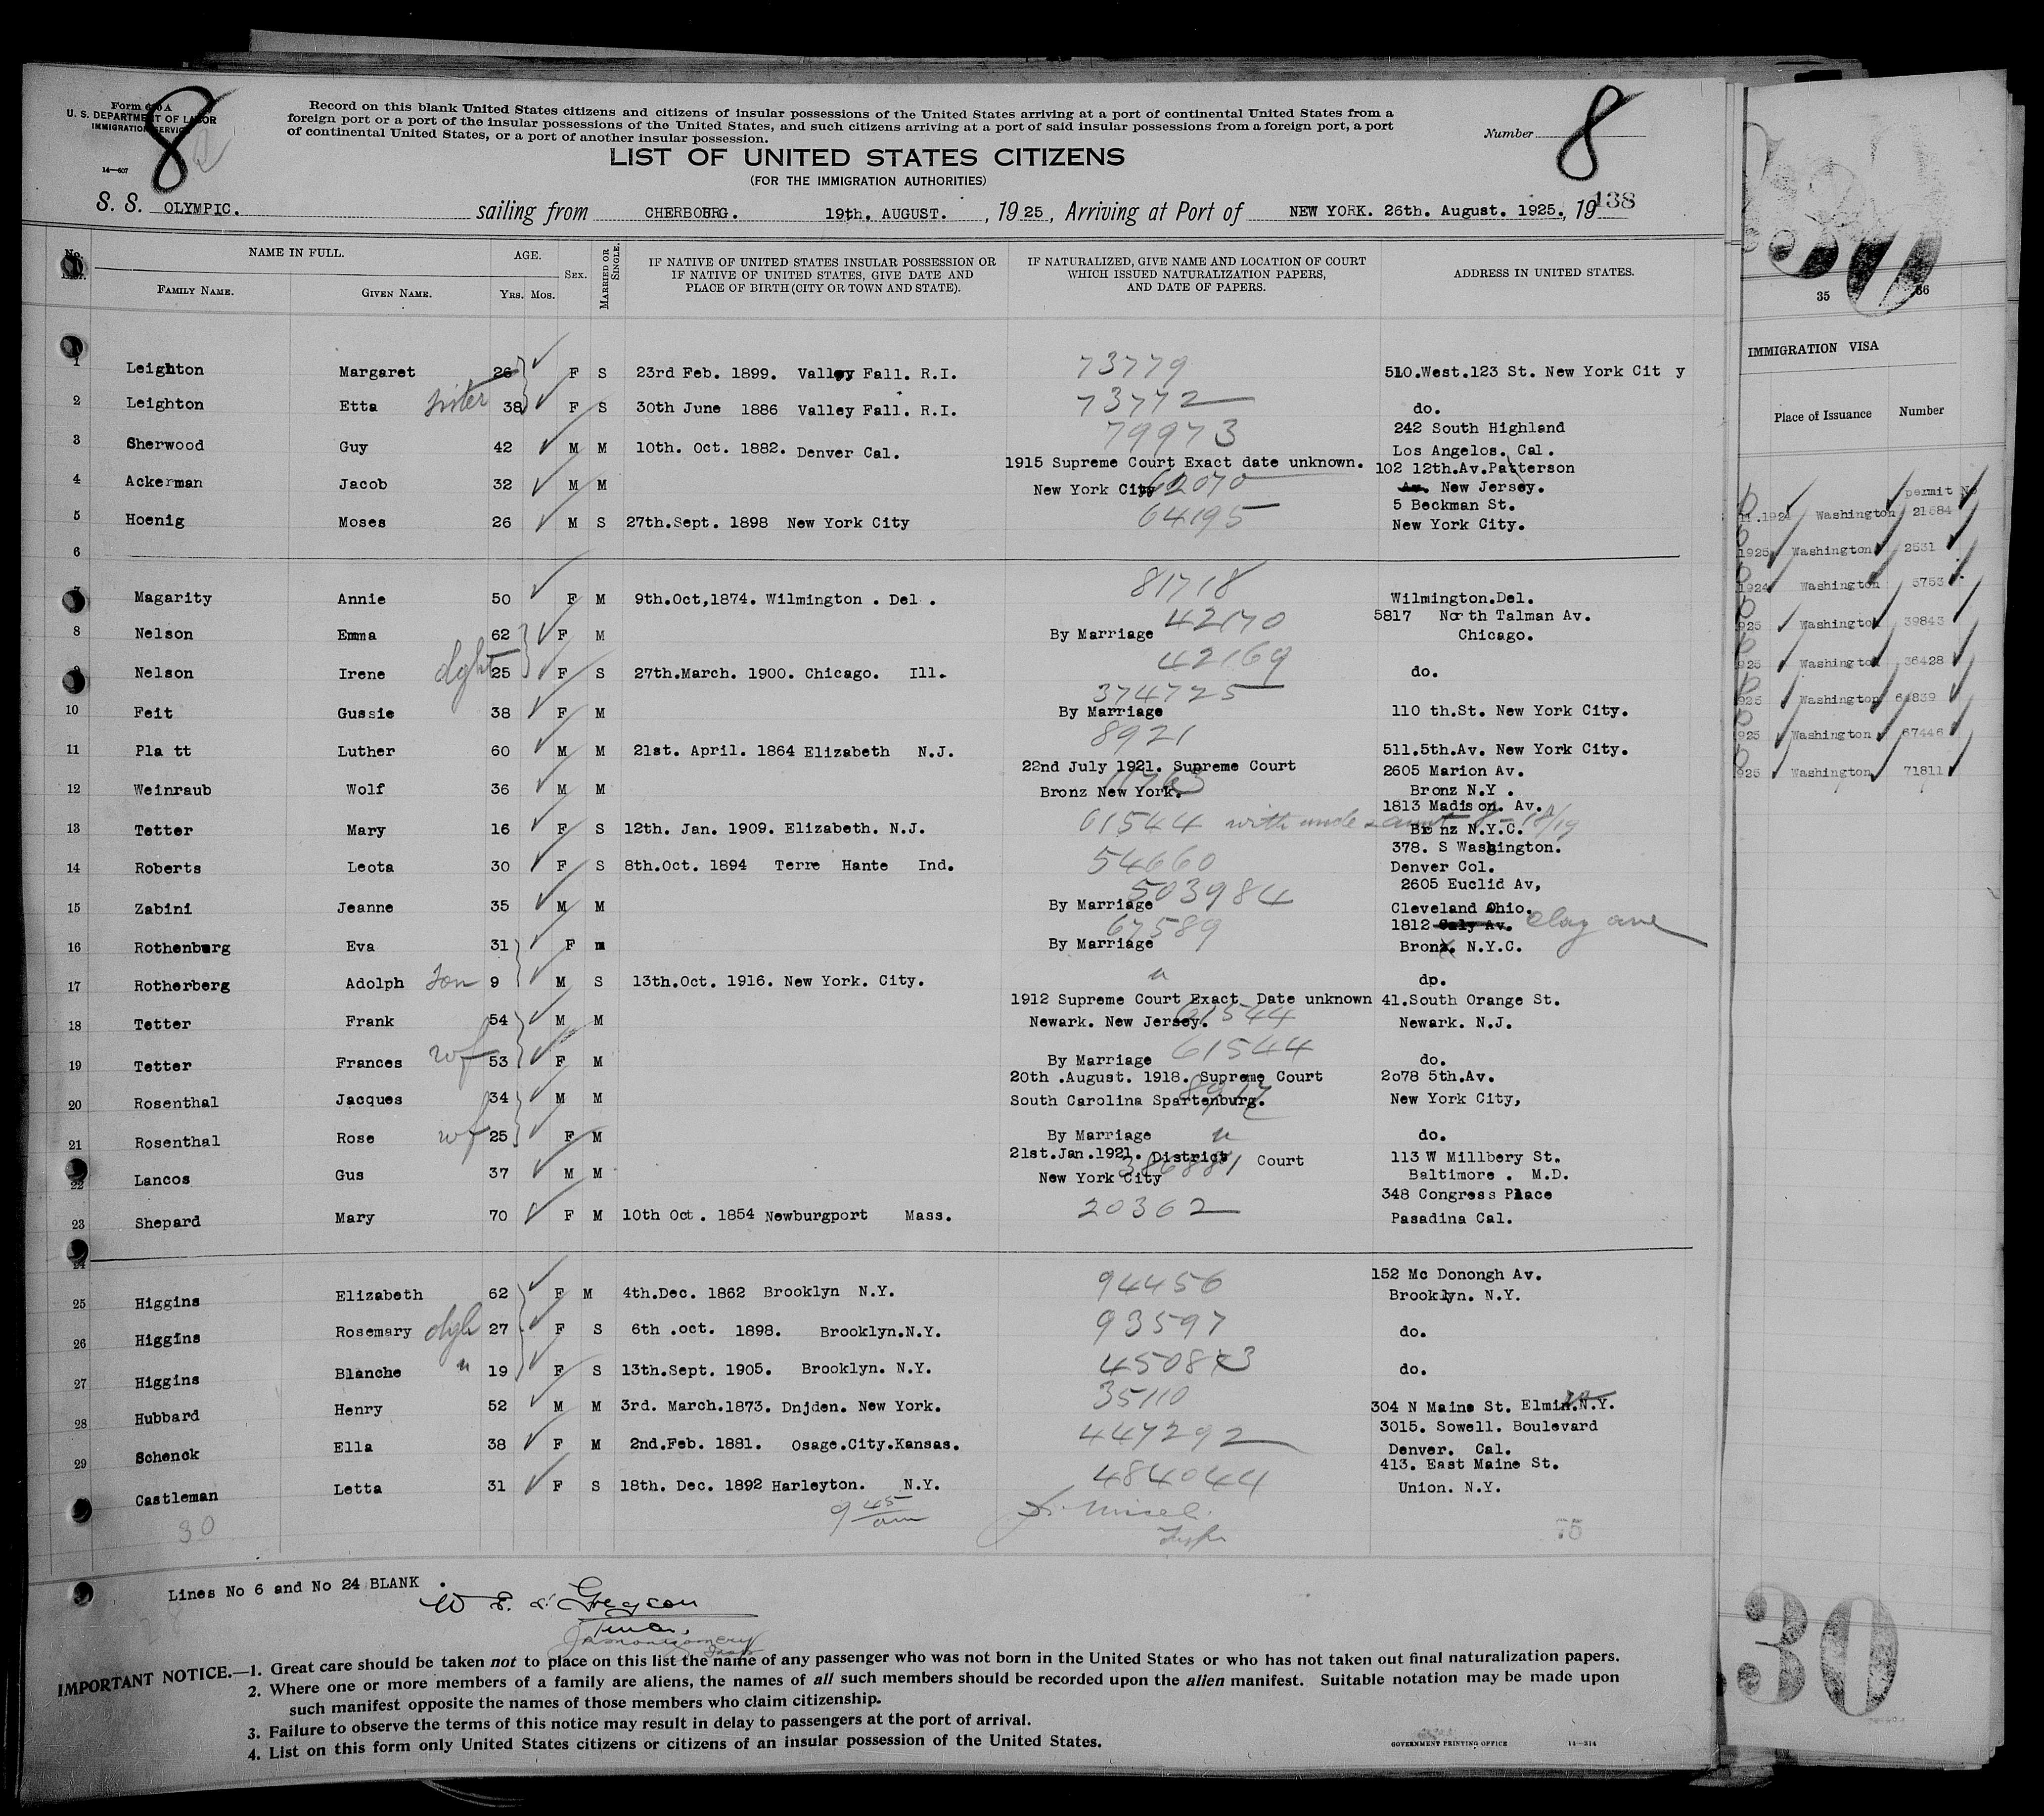 Form 630 A
U. S. DEPARTMENT OF LABOR
IMMIGRATION SERVICE
14—607
8
Record on this blank United States citizens and citizens of insular possessions of the United States arriving at a port of continental United States from a
foreign port or a port of the insular possessions of the United States, and such citizens arriving at a port of said insular possessions from a foreign port, a port
of continental United States, or a port of another insular possession.
Number 8
LIST OF UNITED STATES CITIZENS
(FOR THE IMMIGRATION AUTHORITIES)
S. S. OLYMPIC. sailing from CHERBOURG. 19th. AUGUST. , 1925, Arriving at Port of NEW YORK. 26th. August. 1925., 19 138
NAME IN FULL. AGE. SEX. MARRIED OR SINGLE. IF NATIVE OF UNITED STATES INSULAR POSSESSION OR IF NATIVE OF UNITED STATES, GIVE DATE AND PLACE OF BIRTH (CITY OR TOWN AND STATE). IF NATURALIZED, GIVE NAME AND LOCATION OF COURT WHICH ISSUED NATURALIZATION PAPERS, AND DATE OF PAPERS. ADDRESS IN UNITED STATES.
FAMILY NAME. GIVEN NAME. YRS. MOS.
1 Leighton Margaret 26 F S 23rd Feb. 1899. Valley Fall. R.I. 73779 510.West.123 St. New York Cit y
2 Leighton Etta sister 38 F S 30th June 1886 Valley Fall. R.I. 73772 do.
3 Sherwood Guy 42 M M 10th. Oct. 1882. Denver Cal. 79973 242 South Highland
Los Angelos. Cal.
4 Ackerman Jacob 32 M M 1915 Supreme Court Exact date unknown. 102 12th.Av.Patterson
New York City 62070 Av. New Jersey.
5 Hoenig Moses 26 M S 27th.Sept. 1898 New York City 64195 5 Beckman St.
New York City.
6
7 Magarity Annie 50 F M 9th.Oct,1874. Wilmington . Del . 81718 Wilmington.Del.
8 Nelson Emma 62 F M By Marriage 42170 5817 North Talman Av.
Chicago.
9 Nelson Irene dght 25 F S 27th.March. 1900. Chicago. Ill. 42169 do.
10 Feit Gussie 38 F M 374725 By Marriage 110 th.St. New York City.
11 Pla tt Luther 60 M M 21st. April. 1864 Elizabeth N.J. 8921 511.5th.Av. New York City.
12 Weinraub Wolf 36 M M 22nd July 1921. Supreme Court 2605 Marion Av.
Bronz New York. Bronz N.Y .
13 Tetter Mary 16 F S 12th. Jan. 1909. Elizabeth. N.J. 61544 with uncle & aunt 1813 Madison. Av.
Bronz N.Y.C.
14 Roberts Leota 30 F S 8th.Oct. 1894 Terre Hante Ind. 54660 378. S Washington.
Denver Col.
15 Zabini Jeanne 35 M M By Marriage 503984 2605 Euclid Av,
Cleveland Ohio.
16 Rothenburg Eva 31 F m By Marriage 67589 1812 Caly Av. Clay ave
Bronx. N.Y.C.
17 Rotherberg Adolph Son 9 M S 13th.Oct. 1916. New York. City. " dp.
18 Tetter Frank 54 M M 1912 Supreme Court Exact Date unknown 41.South Orange St.
Newark. New Jersey. 61544 Newark. N.J.
19 Tetter Frances wf 53 F M By Marriage 61544 do.
20 Rosenthal Jacques 34 M M 20th .August. 1918. Supreme Court 2o78 5th.Av.
South Carolina Spartenburg. New York City,
21 Rosenthal Rose wf 25 F M By Marriage " do.
22 Lancos Gus 37 M M 21st.Jan.1921. District Court 113 W Millbery St.
New York City 386881 Baltimore . M.D.
23 Shepard Mary 70 F M 10th Oct . 1854 Newburgport Mass. 20362 348 Congress Place
Pasadina Cal.
24
25 Higgins Elizabeth 62 F M 4th.Dec. 1862 Brooklyn N.Y. 94456 152 Mc Donongh Av.
Brooklyn. N.Y.
26 Higgins Rosemary dgh 27 F S 6th .oct. 1898. Brooklyn.N.Y. 93597 do.
27 Higgins Blanche " 19 F S 13th.Sept. 1905. Brooklyn. N.Y. 45083 do.
28 Hubbard Henry 52 M M 3rd. March.1873. Dnjden. New York. 35110 304 N Maine St. Elmir.N.Y.
29 Schenck Ella 38 F M 2nd.Feb. 1881. Osage.City.Kansas. 447292 3015. Sowell. Boulevard
Denver. Cal.
Castleman Letta 31 F S 18th. Dec. 1892 Harleyton. N.Y. 484044 413. East Maine St.
Union. N.Y.
30 9 45 am 75
Lines No 6 and No 24 BLANK .
IMPORTANT NOTICE.—1. Great care should be taken not to place on this list the name of any passenger who was not born in the United States or who has not taken out final naturalization papers.
2. Where one or more members of a family are aliens, the names of all such members should be recorded upon the alien manifest. Suitable notation may be made upon
such manifest opposite the names of those members who claim citizenship.
3. Failure to observe the terms of this notice may result in delay to passengers at the port of arrival.
4. List on this form only United States citizens or citizens of an insular possession of the United States.
GOVERNMENT PRINTING OFFICE 14—314
35 36
IMMIGRATION VISA
Place of Issuance Number
permit No
1924 Washington 21684
1925 Washington 2531
1924 Washington 5753
925 Washington 39843
925 Washington 36428
925 Washington 64839
925 Washington 67446
925 Washington 71811
30